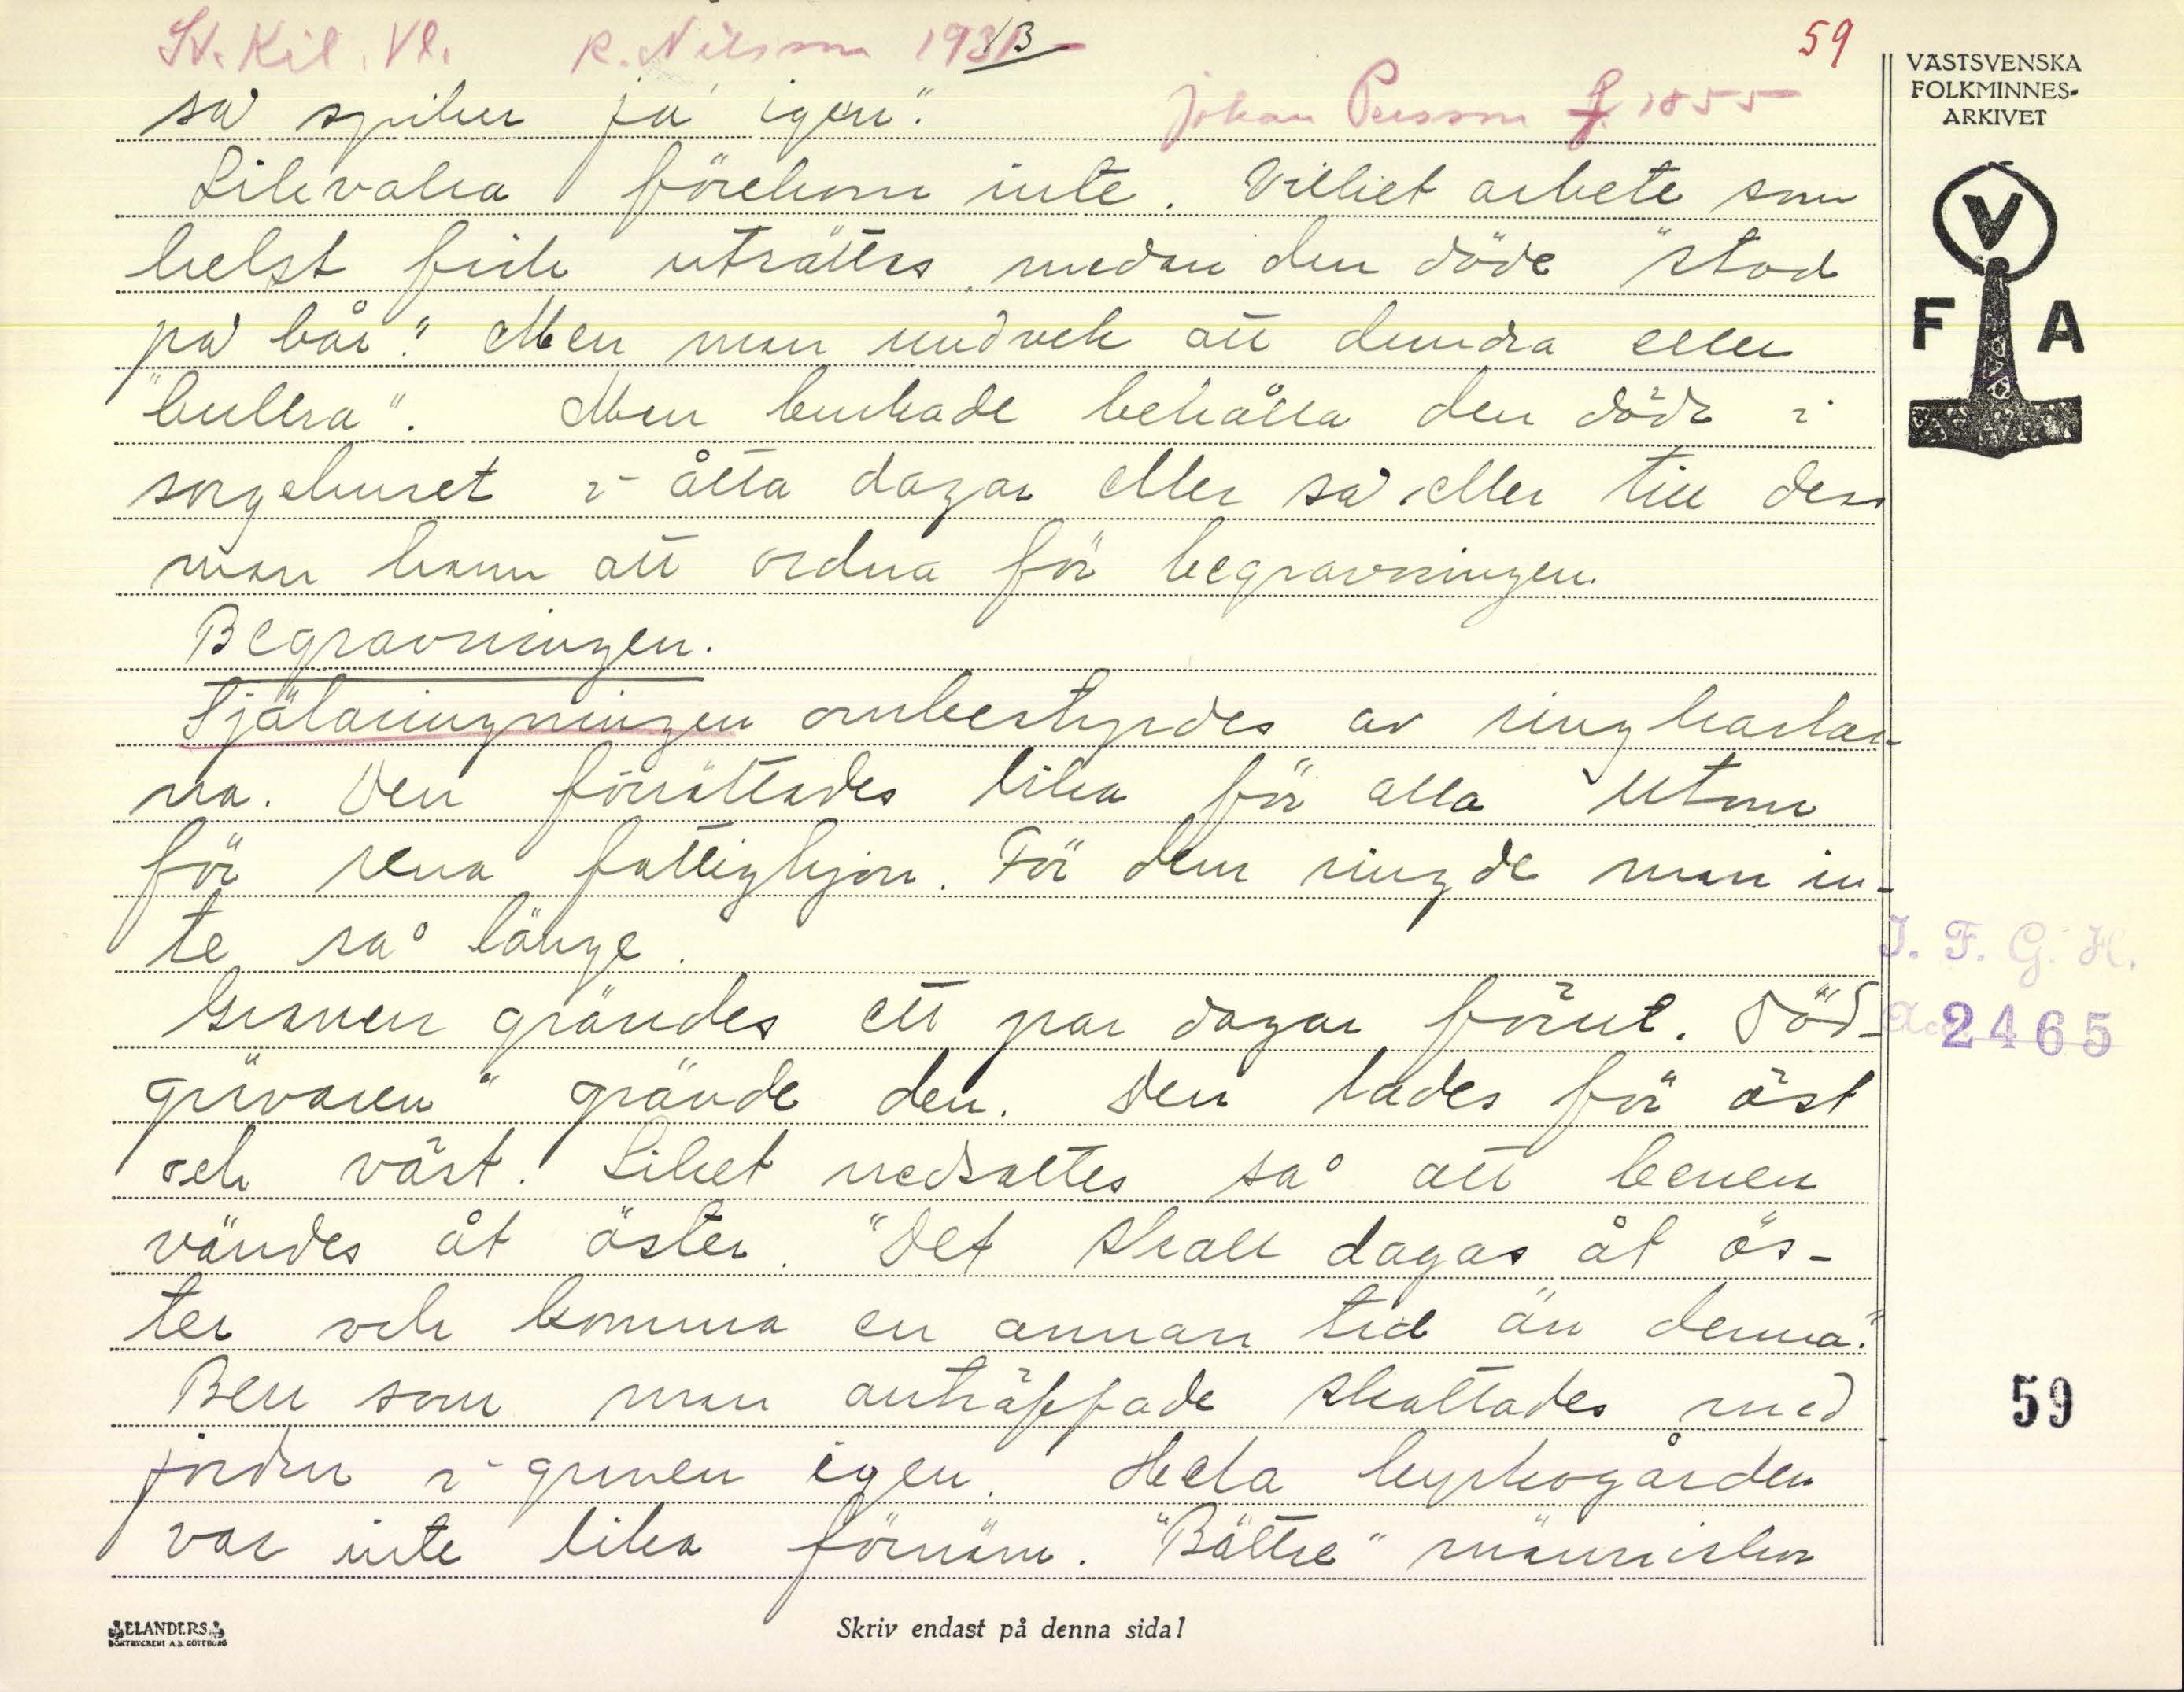 St. Kil. Vl. R. Nilsson 1931 13
59
Johan Persson f. 1855
VÄSTSVENSKA
FOLKMINNES-
ARKIVET
V
F A
så spiker ja' igen".
Likvaka förekom inte. Vilket arbete som
helst fick uträttas medan den döde "stod
på bår." Men man undvek att dundra eller
"bullra". Man brukade behålla den döde i
sorgehuset i åtta dagar eller så eller till dess
man hann att ordna för begravningen.
Begravningen.
Själaringningen ombestyrdes av ringkarlar-
na. Den förrättades lika för alla utom
för rena fattighjon. För dem ringde man in-
te så länge.
Graven grävdes ett par dagar förut. "Död-
grävaren" grävde den. Den lades för öst
och väst. Liket nedsattes så att benen
vändes åt öster. "Det skall dagas åt ös-
ter och komma en annan tid än denna."
Ben som man anträffade skottades med
jorden i graven igen. Hela kyrkogården
var inte lika förnäm. "Bättre" människor
I. F. G. H.
Acc 2465
59
ELANDERS
BOKTRYCKERI A.B. GÖTEBORG
Skriv endast på denna sida!